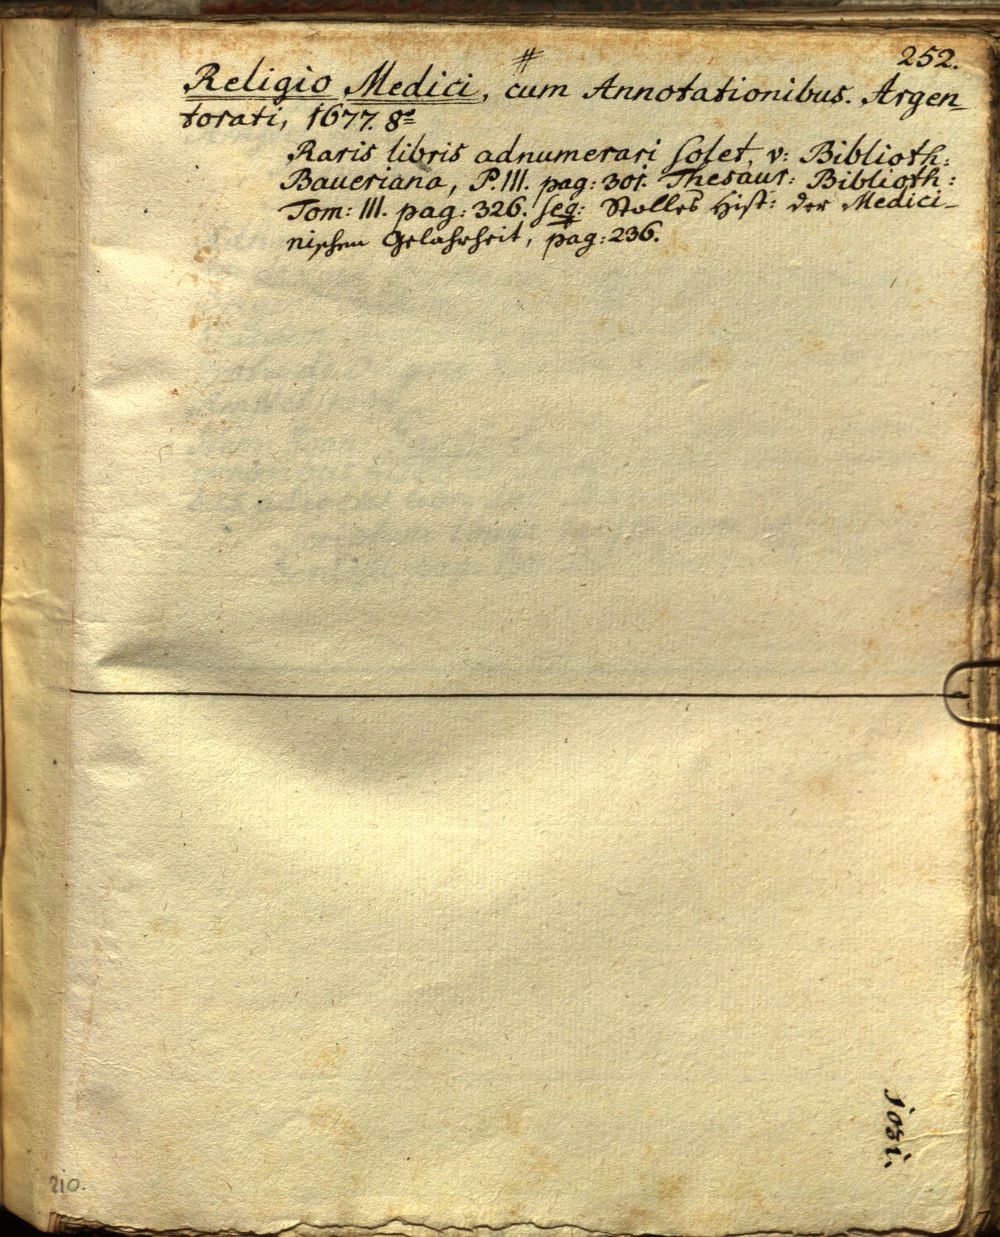 #
252.
Religio Medici, cum Annotationibus. Argen-
torati, 1677. 8º
Raris libris adnumerari solet, v: Biblioth:
Baueriana, P. III. pag: 301. Thesaur: Biblioth:
Tom: III. pag: 326. seq: Stolles Hist: der Medici-
nischen Gelahrheit, pag: 236.
210.